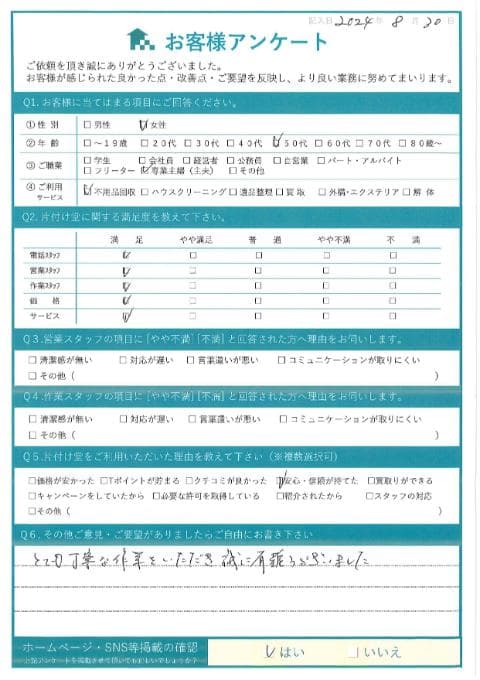 記入日 2024年 8月 30日
お客様アンケート
ご依頼を頂き誠にありがとうございました。
お客様が感じられた良かった点・改善点・ご要望を反映し、より良い業務に努めてまいります。
Q1. お客様に当てはまる項目にご回答ください。
①性 別 □男性 ☑女性
②年 齢 □～19歳 □20代 □30代 □40代 ☑50代 □60代 □70代 □80歳～
③ご職業 □学生 □会社員 □経営者 □公務員 □自営業 □パート・アルバイト
□フリーター ☑専業主婦（主夫） □その他
④ご利用サービス ☑不用品回収 □ハウスクリーニング □遺品整理 □買取 □外構・エクステリア □解体
Q2. 片付け堂に関する満足度を教えて下さい。
満 足 やや満足 普 通 やや不満 不 満
電話スタッフ ☑ □ □ □ □
営業スタッフ ☑ □ □ □ □
作業スタッフ ☑ □ □ □ □
価 格 ☑ □ □ □ □
サービス ☑ □ □ □ □
Q3. 営業スタッフの項目に[やや不満][不満]と回答された方へ理由をお伺いします。
□清潔感が無い □対応が遅い □言葉遣いが悪い □コミュニケーションが取りにくい
□その他（ ）
Q4. 作業スタッフの項目に[やや不満][不満]と回答された方へ理由をお伺いします。
□清潔感が無い □対応が遅い □言葉遣いが悪い □コミュニケーションが取りにくい
□その他（ ）
Q5. 片付け堂をご利用いただいた理由を教えて下さい（※複数選択可）
□価格が安かった □Tポイントが貯まる □クチコミが良かった ☑安心・信頼が持てた □買取りができる
□キャンペーンをしていたから □必要な許可を取得している □紹介されたから □スタッフの対応
□その他（ ）
Q6. その他ご意見・ご要望がありましたらご自由にお書き下さい
とても丁寧な作業をいただき誠に有難うございました
ホームページ・SNS等掲載の確認 ☑はい □いいえ
上記アンケートを掲載させて頂いてもよいでしょうか？